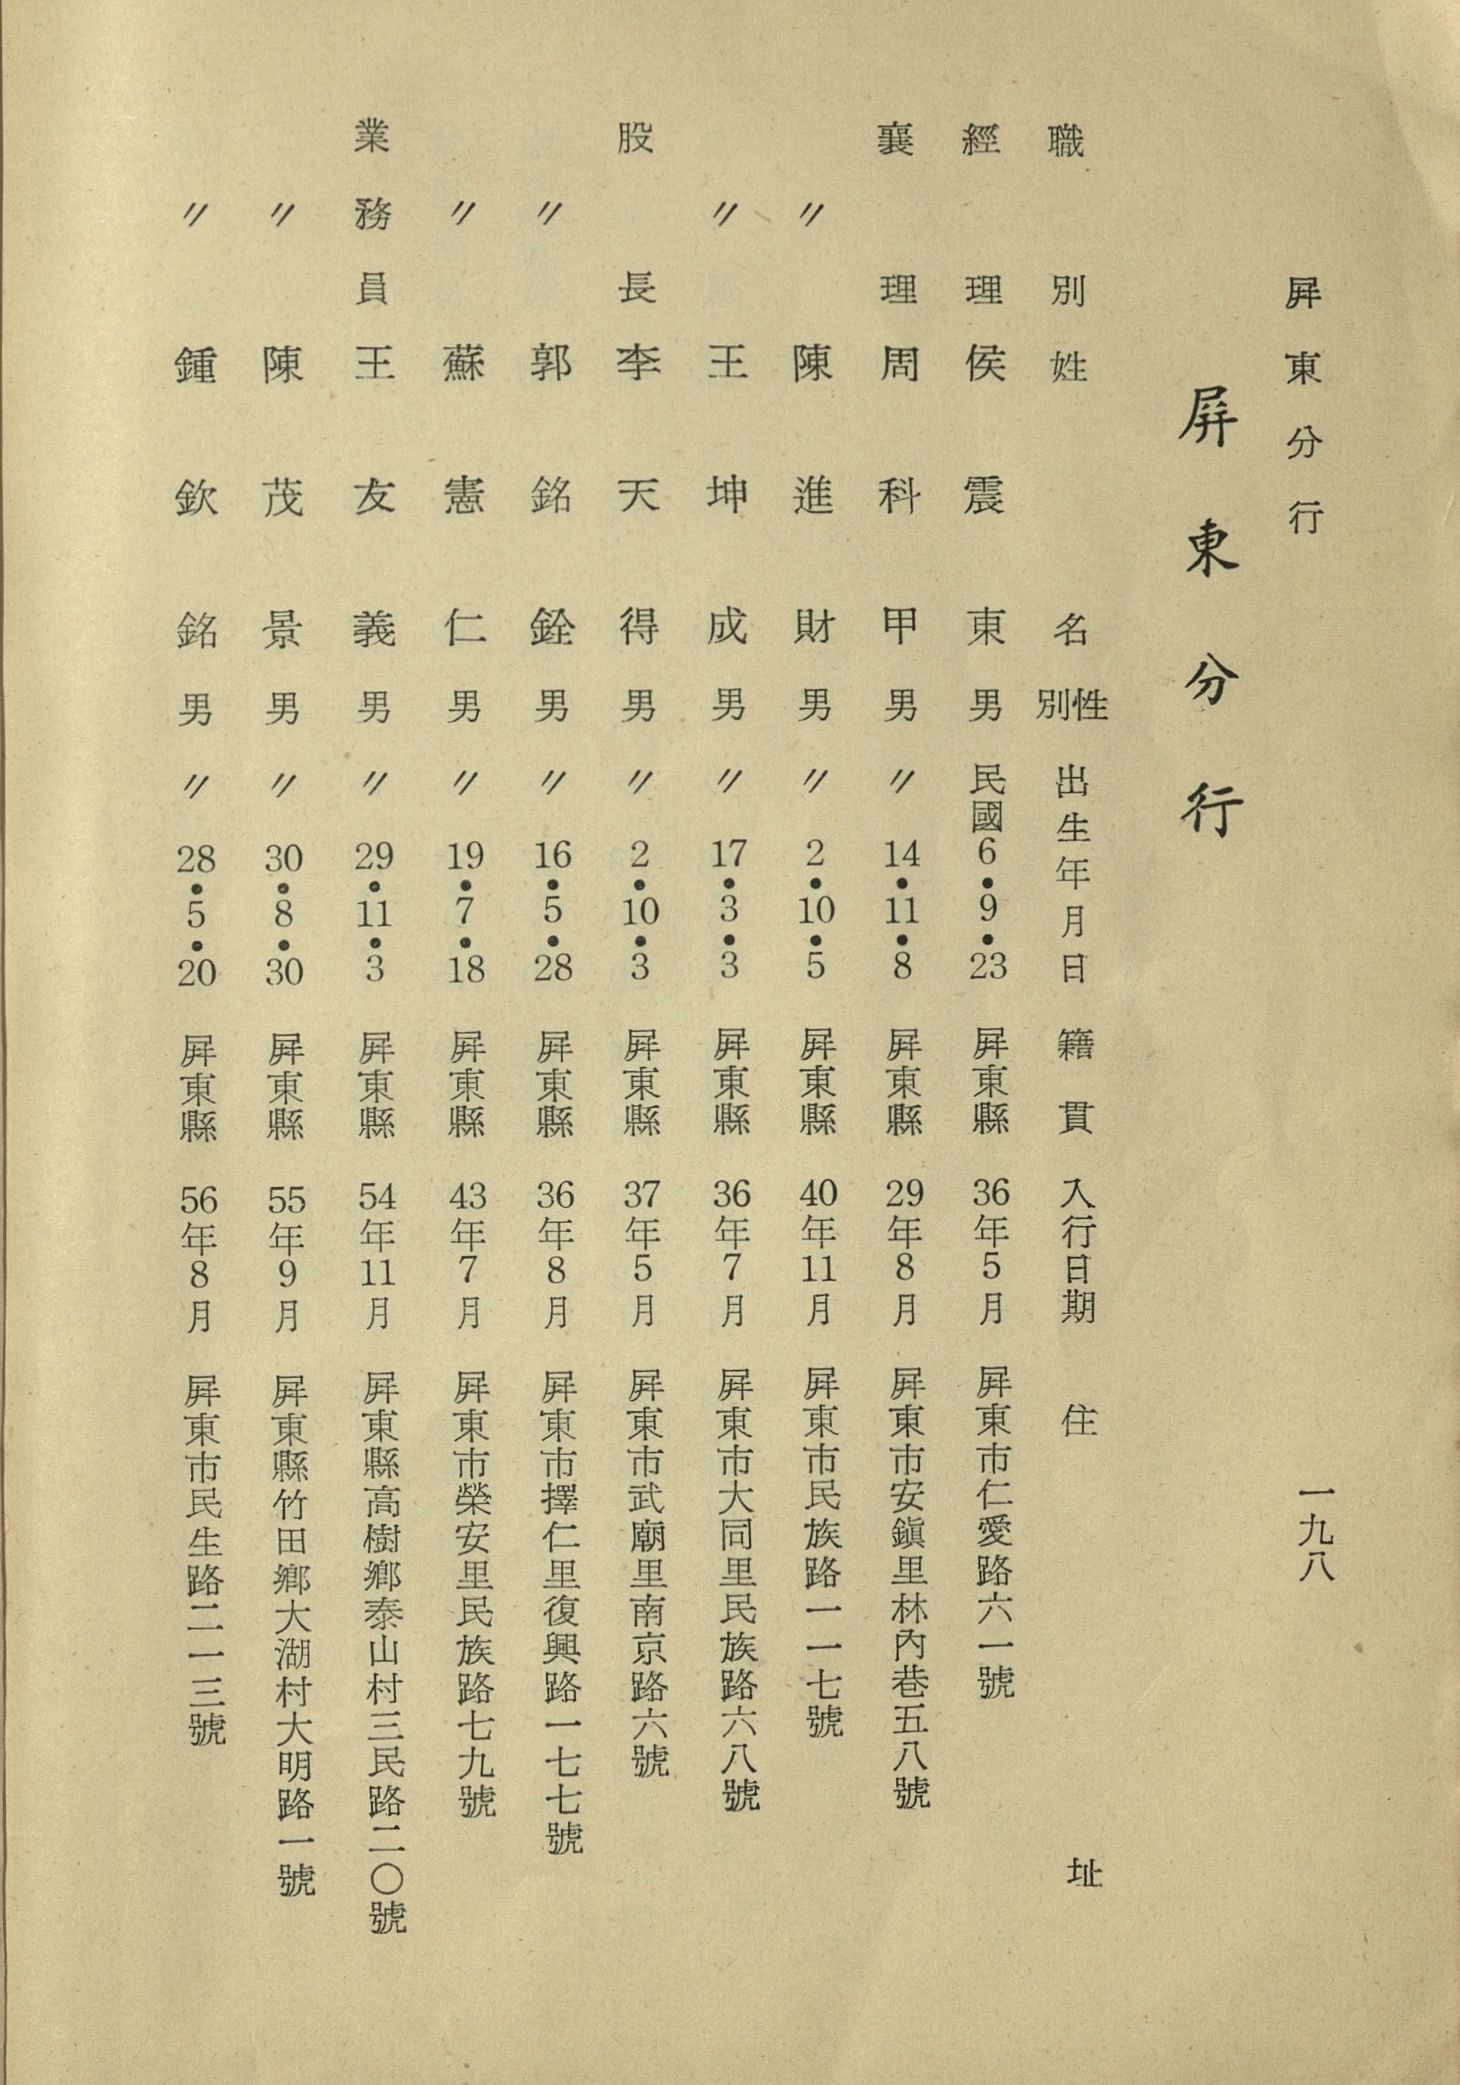 屛東分行
一九八
屛東分行
職別 姓名 性別 出生年月日 籍貫 入行日期 住址
經理 侯震東 男 民國6•9•23 屛東縣 36年5月 屛東市仁愛路六一號
襄理 周科甲 男 〃14•11•8 屛東縣 29年8月 屛東市安鎭里林內巷五八號
〃 陳進財 男 〃2•10•5 屛東縣 40年11月 屛東市民族路一一七號
〃 王坤成 男 〃17•3•3 屛東縣 36年7月 屛東市大同里民族路六八號
股長 李天得 男 〃2•10•3 屛東縣 37年5月 屛東市武廟里南京路六號
〃 郭銘銓 男 〃16•5•28 屛東縣 36年8月 屛東市擇仁里復興路一七七號
〃 蘇憲仁 男 〃19•7•18 屛東縣 43年7月 屛東市榮安里民族路七九號
業務員 王友義 男 〃29•11•3 屛東縣 54年11月 屛東縣高樹鄉泰山村三民路二〇號
〃 陳茂景 男 〃30•8•30 屛東縣 55年9月 屛東縣竹田鄉大湖村大明路一號
〃 鍾欽銘 男 〃28•5•20 屛東縣 56年8月 屛東市民生路二一三號